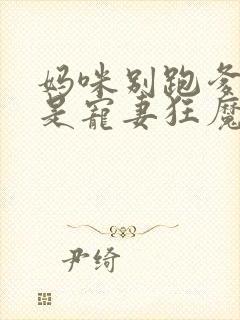 妈咪别跑爹
是宠妻狂魔
尹绮